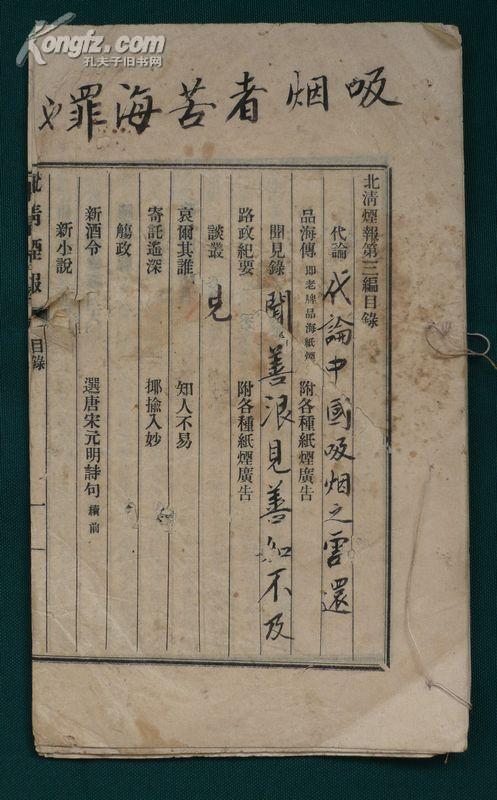 Kongfz.com
孔夫子旧书网
吸烟者苦海罪
北清煙報第三編目錄
代論 代論中國吸烟之還
品海傳 即老牌品海紙煙 附各種紙煙廣告
聞見錄 聞善浪見善如不及
路政紀要 附各種紙煙廣告
談叢 見
哀爾其誰 知人不易
寄託遙深 揶揄入妙
觴政
新酒令 選唐宋元明詩句 續前
新小說
清煙報 目錄 一